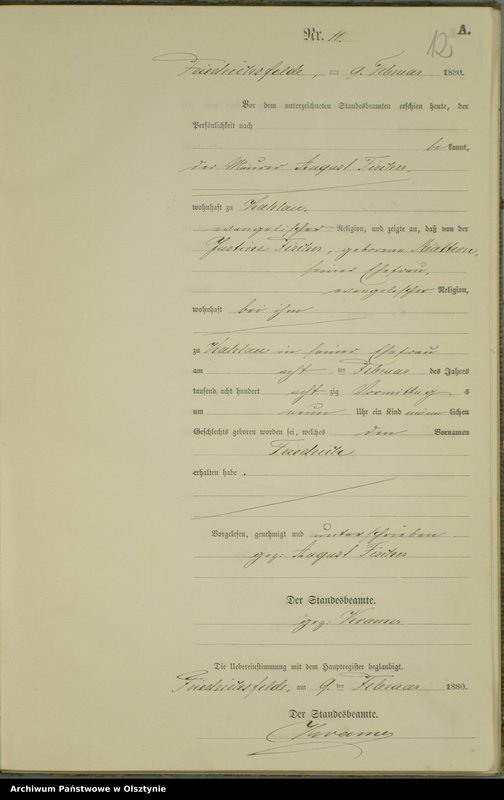 Nr. 11.
A.
12
Friedrichsfelde, am 9. Februar 1880.
Vor dem unterzeichneten Standesbeamten erschien heute, der
Persönlichkeit nach
bekannt,
der Maurer August Fischer,
wohnhaft zu Kahlau,
evangelischer Religion, und zeigte an, daß von der
Justine Fischer, geborene Mattern,
seiner Ehefrau,
evangelischer Religion,
wohnhaft bei ihm
zu Kahlau in seiner Ehefrau
am acht ten Februar des Jahres
tausend acht hundert acht zig Vormittag s
um neun Uhr ein Kind männlichen
Geschlechts geboren worden sei, welches den Vornamen
Friedrich
erhalten habe.
Vorgelesen, genehmigt und unterschrieben
gez: August Fischer
Der Standesbeamte.
gez: Kramer
Die Uebereinstimmung mit dem Hauptregister beglaubigt.
Friedrichsfelde, am 9. ten Februar 1880.
Der Standesbeamte.
Kramer
Archiwum Państwowe w Olsztynie